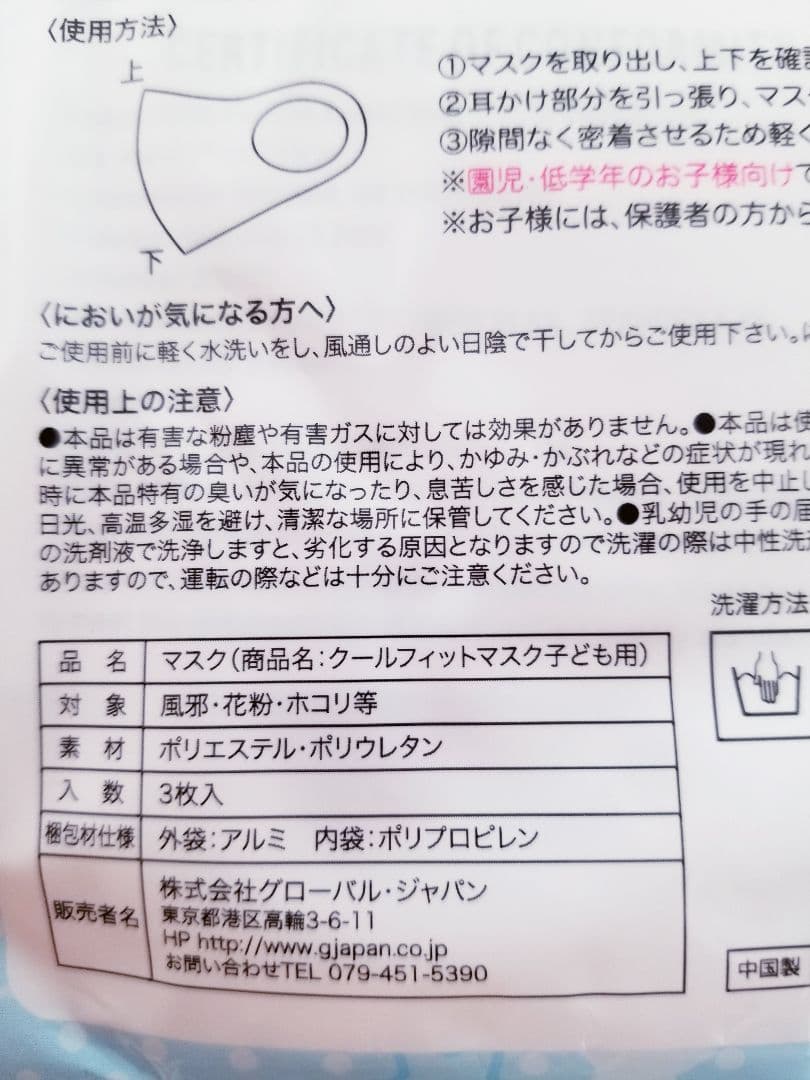 〈使用方法〉
上
下
①マスクを取り出し、上下を確認
②耳かけ部分を引っ張り、マス
③隙間なく密着させるため軽く
※園児・低学年のお子様向けで
※お子様には、保護者の方から
〈においが気になる方へ〉
ご使用前に軽く水洗いをし、風通しのよい日陰で干してからご使用下さい。
〈使用上の注意〉
●本品は有害な粉塵や有害ガスに対しては効果がありません。●本品は使
に異常がある場合や、本品の使用により、かゆみ・かぶれなどの症状が現れ
時に本品特有の臭いが気になったり、息苦しさを感じた場合、使用を中止し
日光、高温多湿を避け、清潔な場所に保管してください。●乳幼児の手の届
の洗剤液で洗浄しますと、劣化する原因となりますので洗濯の際は中性洗
ありますので、運転の際などは十分にご注意ください。
洗濯方法
品 名 マスク(商品名:クールフィットマスク子ども用)
対 象 風邪・花粉・ホコリ等
素 材 ポリエステル・ポリウレタン
入 数 3枚入
梱包材仕様 外袋:アルミ 内袋:ポリプロピレン
販売者名 株式会社グローバル・ジャパン
東京都港区高輪3-6-11
HP http://www.gjapan.co.jp
お問い合わせTEL 079-451-5390
中国製